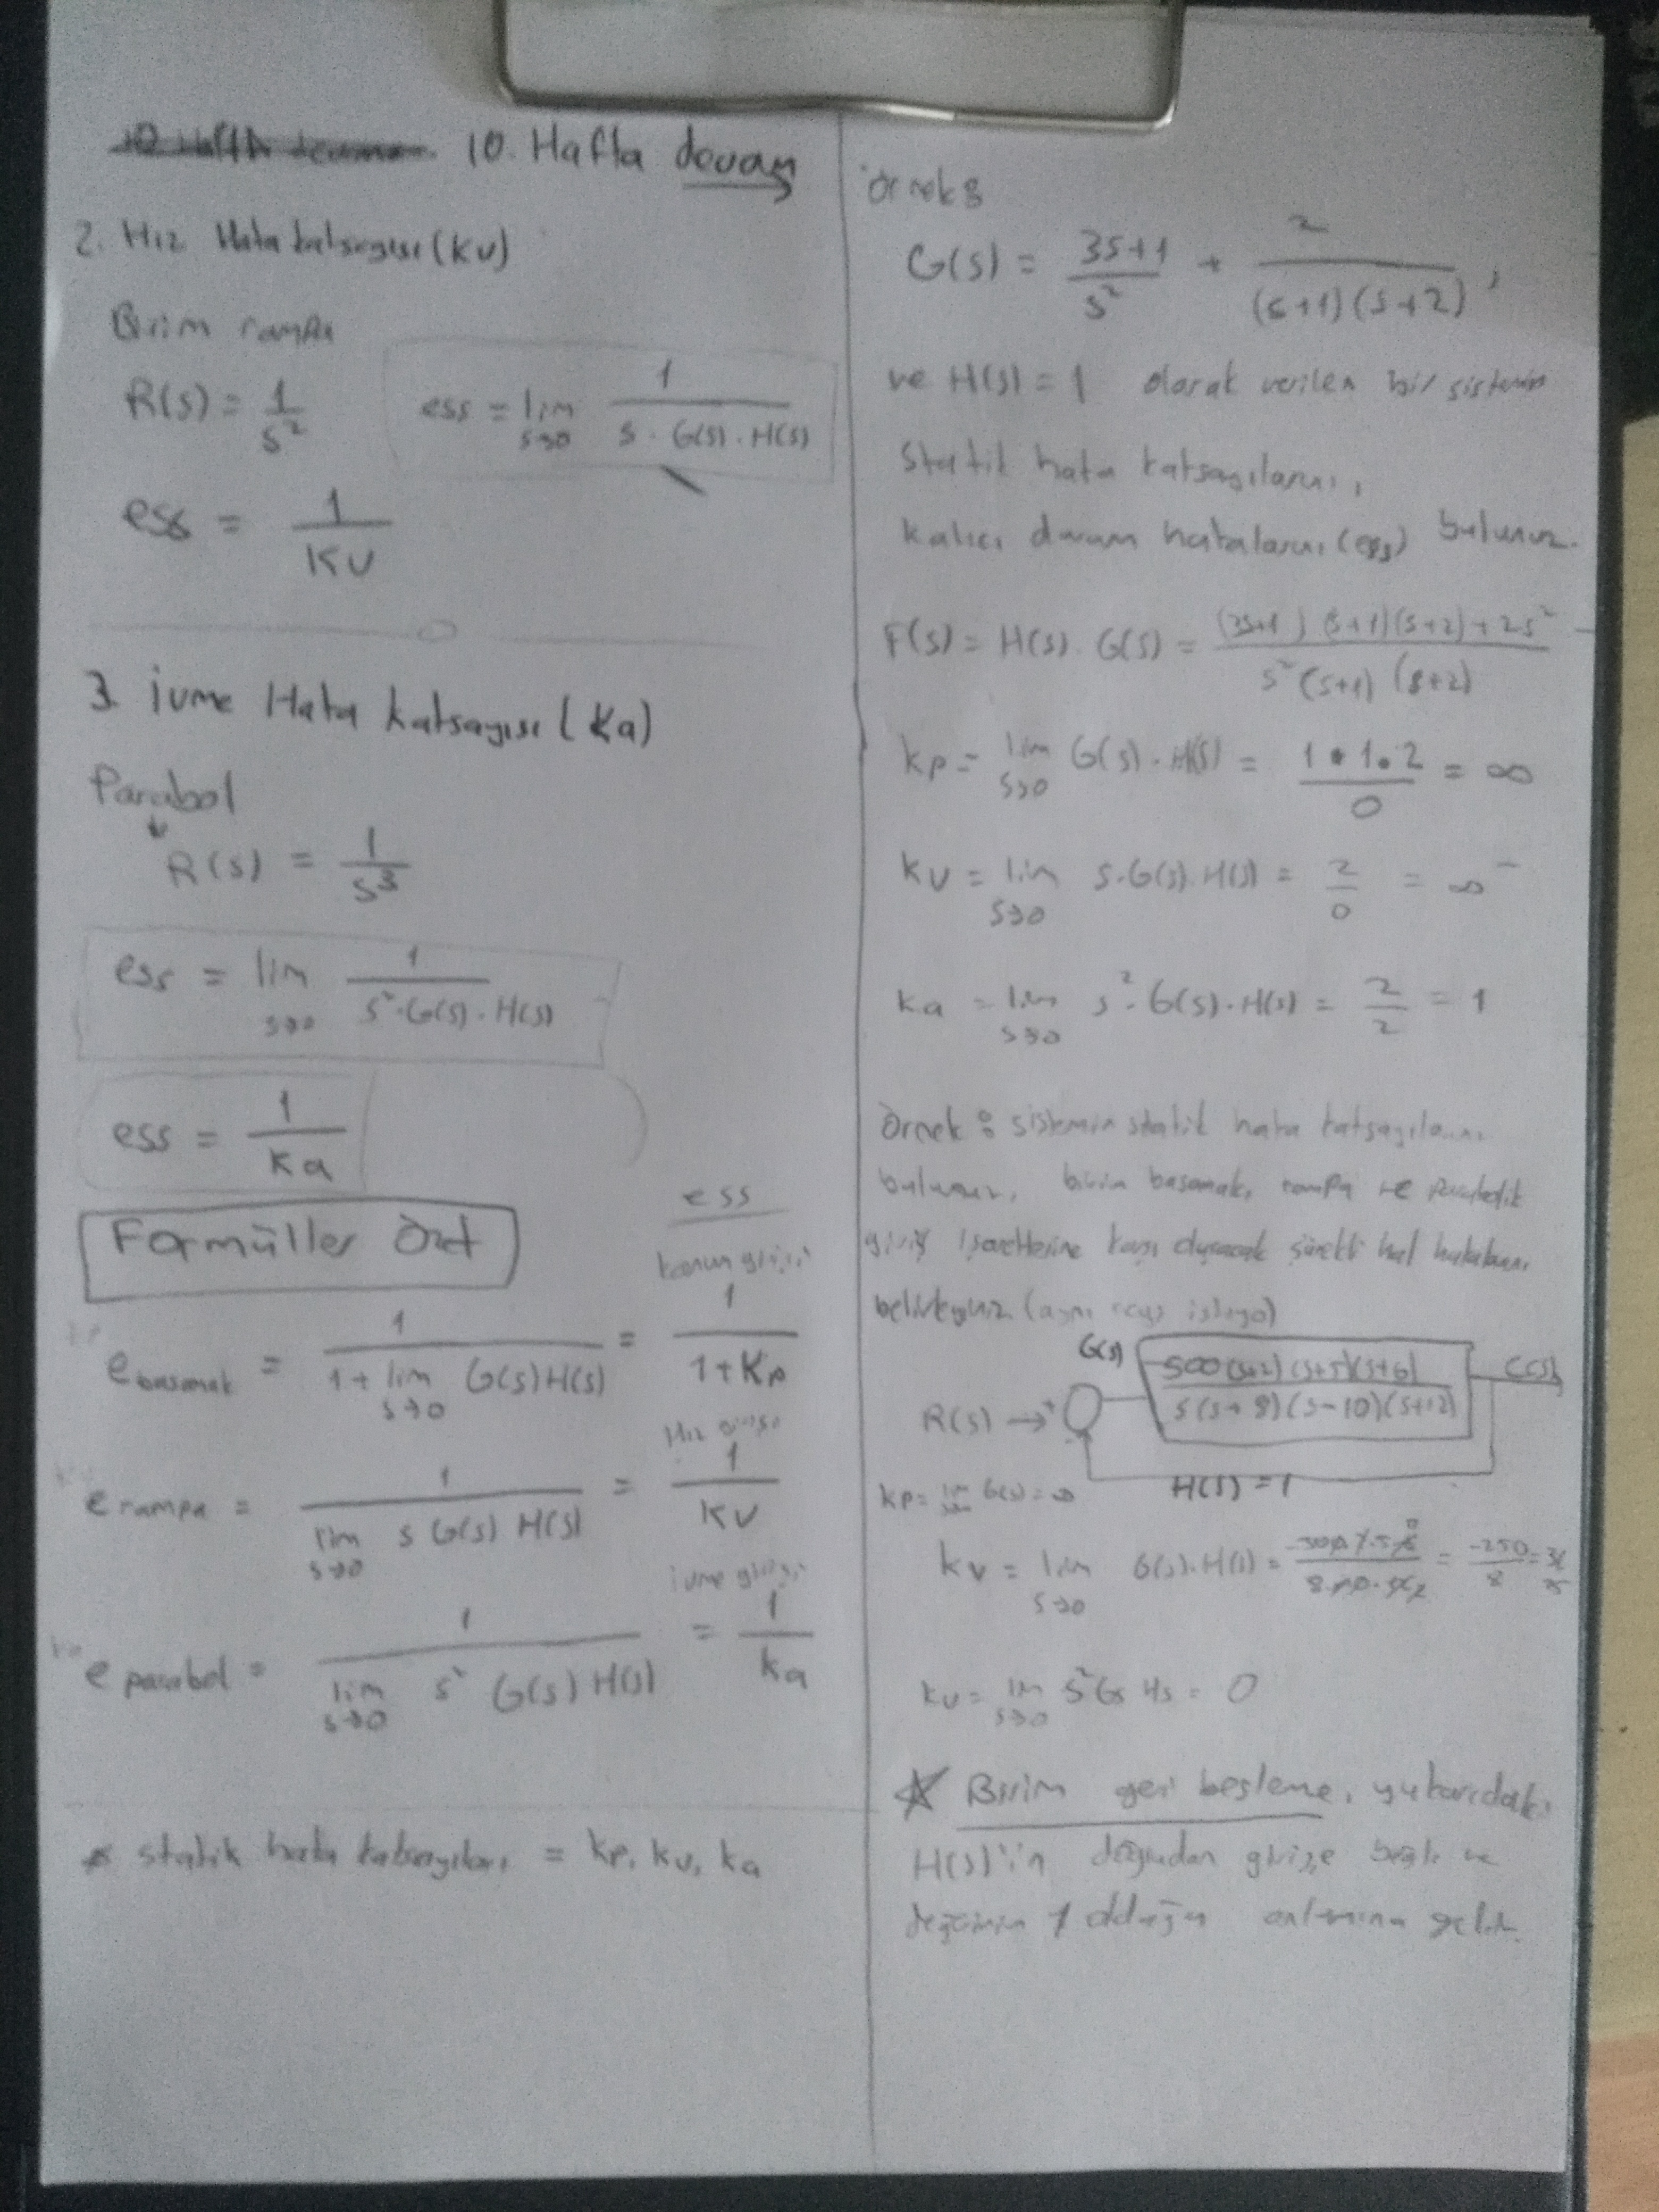 10. Hafta devam
2. Hız Hata katsayısı (Kv)
Birim rampa
R(s) = 1/s²
ess = lim s→0 1/(s · G(s) · H(s))
ess = 1/Kv
3. İvme Hata katsayısı (Ka)
Parabol
R(s) = 1/s³
ess = lim s→0 1/(s² · G(s) · H(s))
ess = 1/Ka
Formüller Özet
ess
konum girişi
e basamak = 1/(1 + lim s→0 G(s)H(s)) = 1/(1+Kp)
Hız girişi
e rampa = 1/(lim s→0 s G(s) H(s)) = 1/Kv
ivme girişi
e parabol = 1/(lim s→0 s² G(s) H(s)) = 1/ka
* statik hata katsayıları = kp, kv, ka
örnek:
G(s) = (3s+1)/s² + 2/((s+1)(s+2)),
ve H(s) = 1 olarak verilen bir sistemin
statik hata katsayılarını,
kalıcı durum hatalarını (ess) bulunuz.
F(s) = H(s). G(s) = ((3s+1)(s+1)(s+2)+2s²)/(s²(s+1)(s+2))
kp = lim s→0 G(s) · H(s) = 1.1.2/0 = ∞
kv = lim s→0 s·G(s).H(s) = 2/0 = ∞
ka = lim s→0 s²·G(s).H(s) = 2/2 = 1
Örnek: sistemin statik hata katsayılarını
bulunuz, birim basamak, rampa ve parabolik
giriş işaretlerine karşı oluşacak sürekli hal hatalarını
belirleyiniz (aynı şeyi istiyo)
G(s) 500(s+2)(s+5)(s+6)/(s(s+8)(s-10)(s+12)) C(s)
R(s) → +
H(s) = 1
kp = lim s→0 G(s) = ∞
kv = lim s→0 G(s).H(s) = = -250/8 =
kv = lim s→0 s² Gs Hs = 0
☆ Birim geri besleme, yukarıdaki
H(s)'in doğrudan girişe bağlı ve
değerinin 1 olduğu anlamına gelir.